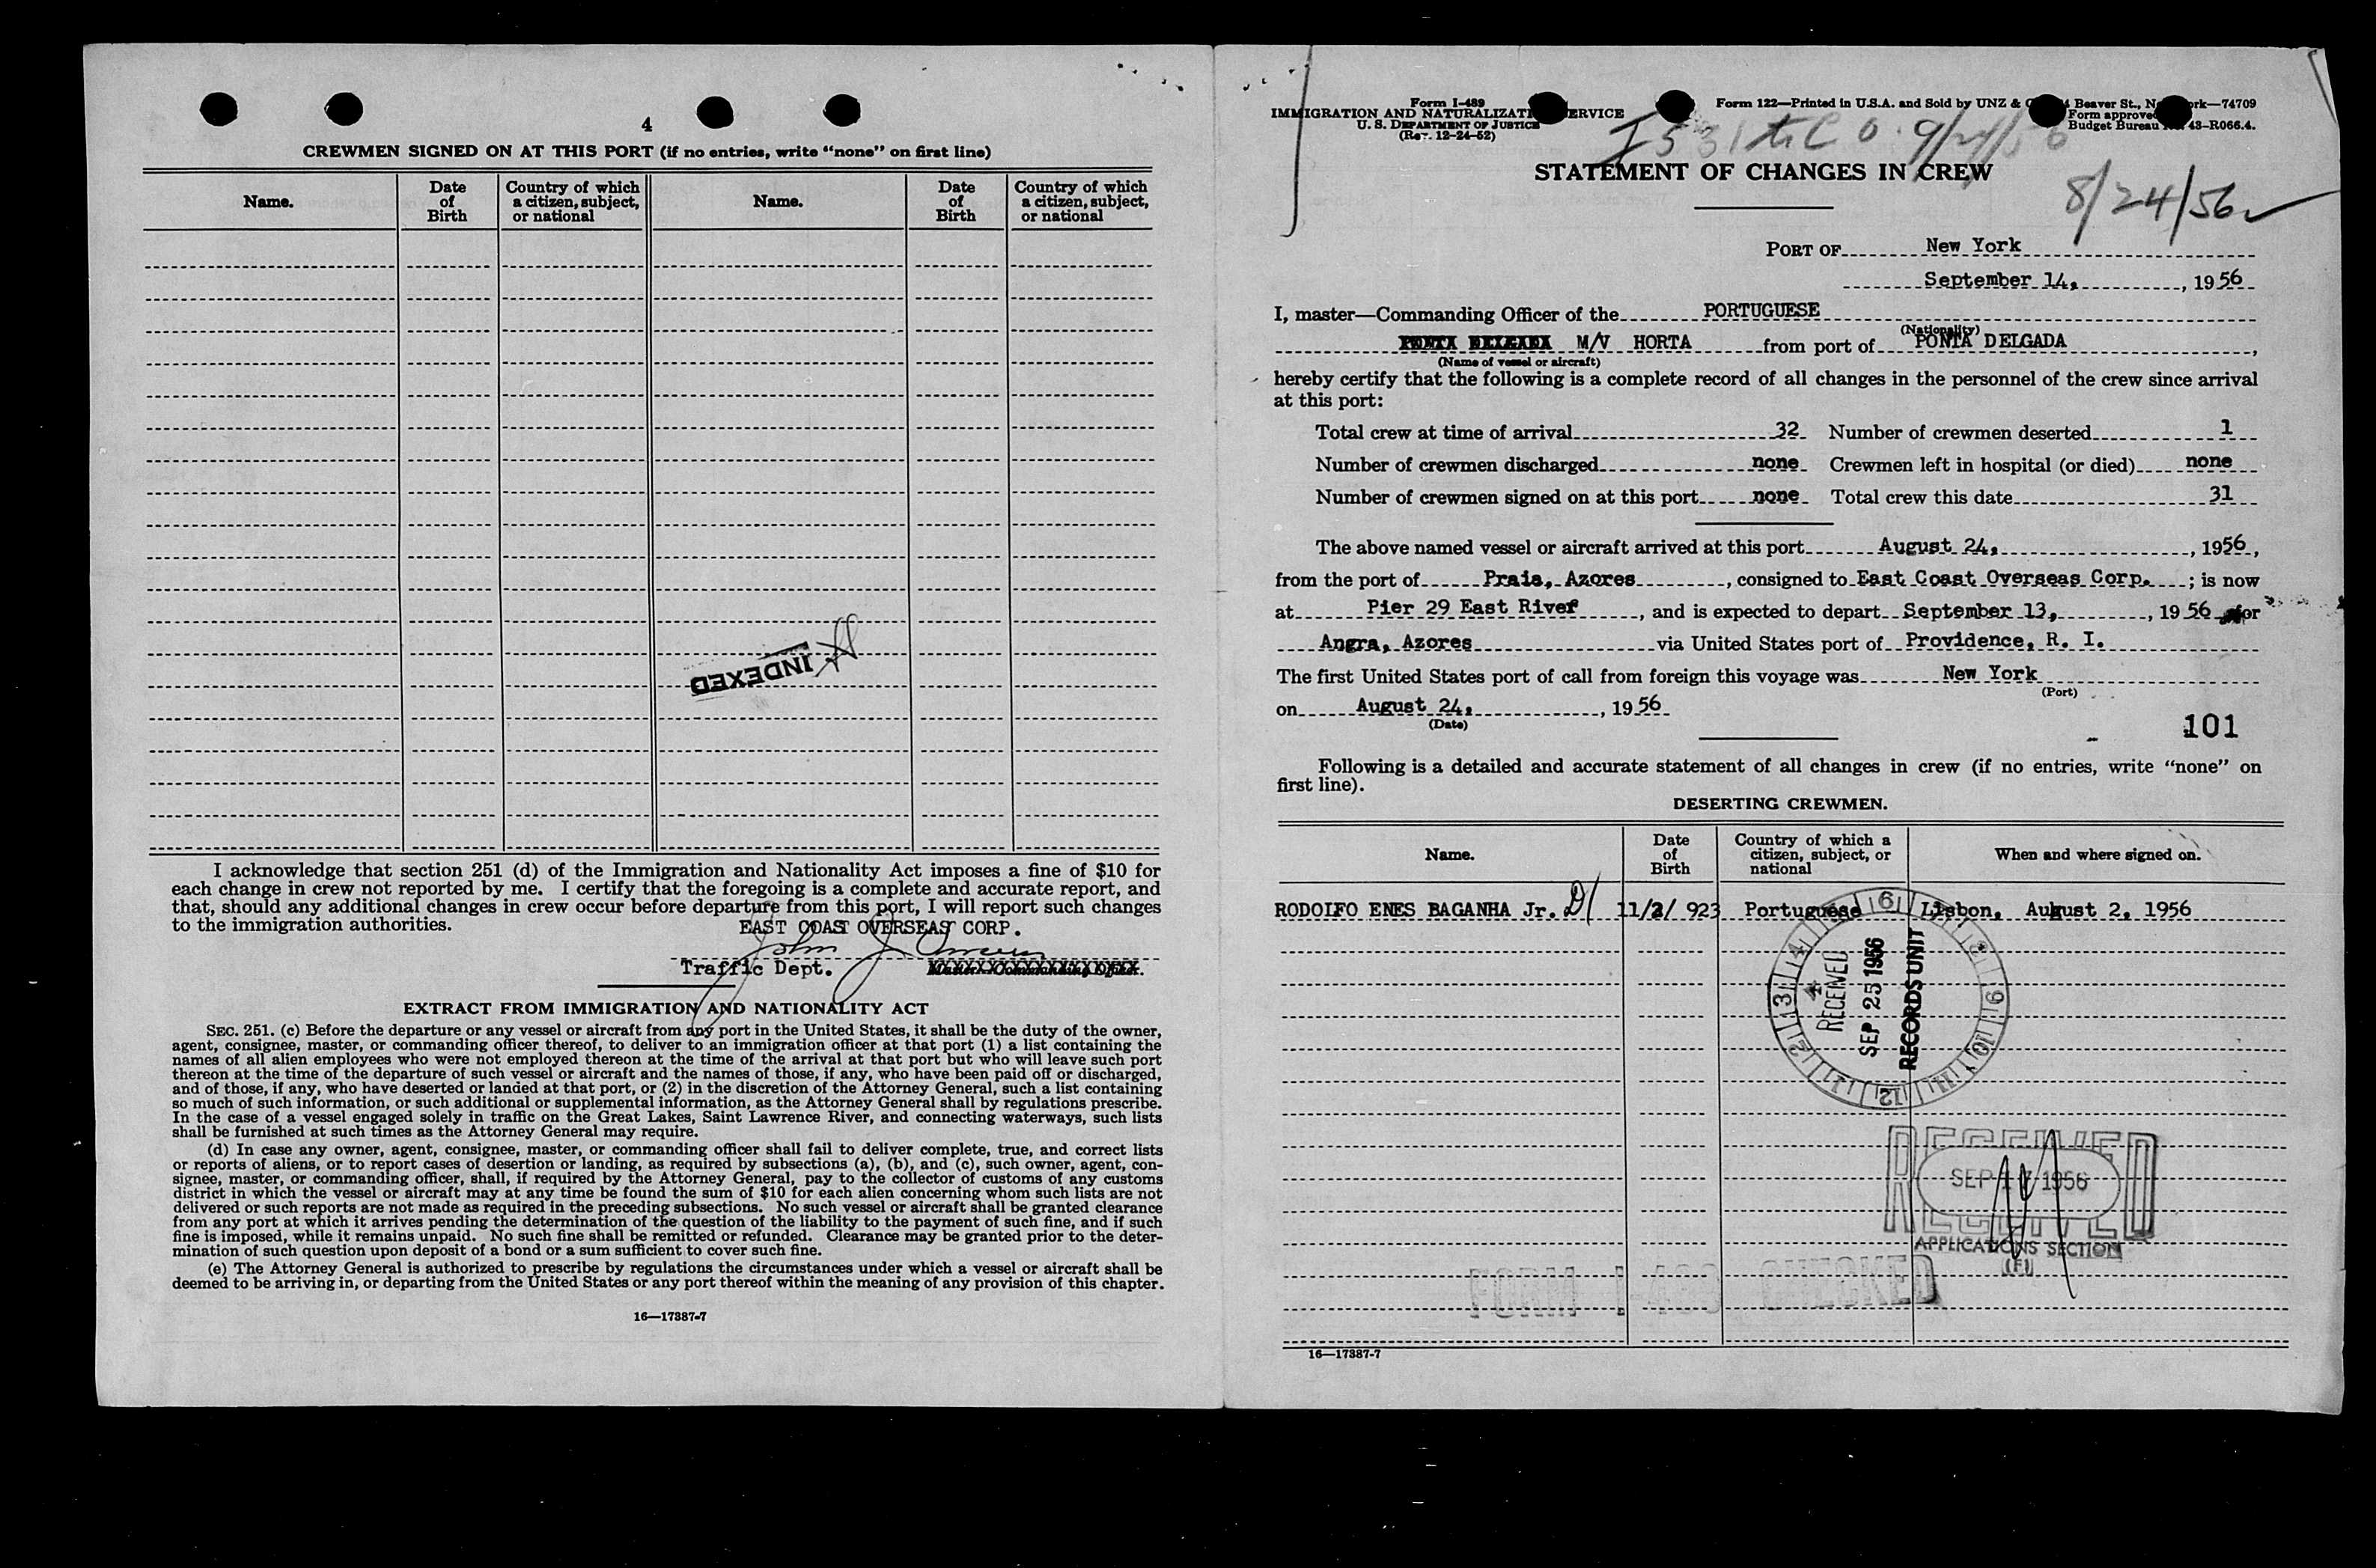 4
CREWMEN SIGNED ON AT THIS PORT (if no entries, write “none” on first line)
Name.
Date
of
Birth
Country of which
a citizen, subject,
or national
Name.
Date
of
Birth
Country of which
a citizen, subject,
or national
INDEXED
I acknowledge that section 251 (d) of the Immigration and Nationality Act imposes a fine of $10 for
each change in crew not reported by me. I certify that the foregoing is a complete and accurate report, and
that, should any additional changes in crew occur before departure from this port, I will report such changes
to the immigration authorities.
EAST COAST OVERSEAS CORP.
John J.
Traffic Dept.
EXTRACT FROM IMMIGRATION AND NATIONALITY ACT
SEC. 251. (c) Before the departure or any vessel or aircraft from any port in the United States, it shall be the duty of the owner,
agent, consignee, master, or commanding officer thereof, to deliver to an immigration officer at that port (1) a list containing the
names of all alien employees who were not employed thereon at the time of the arrival at that port but who will leave such port
thereon at the time of the departure of such vessel or aircraft and the names of those, if any, who have been paid off or discharged,
and of those, if any, who have deserted or landed at that port, or (2) in the discretion of the Attorney General, such a list containing
so much of such information, or such additional or supplemental information, as the Attorney General shall by regulations prescribe.
In the case of a vessel engaged solely in traffic on the Great Lakes, Saint Lawrence River, and connecting waterways, such lists
shall be furnished at such times as the Attorney General may require.
(d) In case any owner, agent, consignee, master, or commanding officer shall fail to deliver complete, true, and correct lists
or reports of aliens, or to report cases of desertion or landing, as required by subsections (a), (b), and (c), such owner, agent, con-
signee, master, or commanding officer, shall, if required by the Attorney General, pay to the collector of customs of any customs
district in which the vessel or aircraft may at any time be found the sum of $10 for each alien concerning whom such lists are not
delivered or such reports are not made as required in the preceding subsections. No such vessel or aircraft shall be granted clearance
from any port at which it arrives pending the determination of the question of the liability to the payment of such fine, and if such
fine is imposed, while it remains unpaid. No such fine shall be remitted or refunded. Clearance may be granted prior to the deter-
mination of such question upon deposit of a bond or a sum sufficient to cover such fine.
(e) The Attorney General is authorized to prescribe by regulations the circumstances under which a vessel or aircraft shall be
deemed to be arriving in, or departing from the United States or any port thereof within the meaning of any provision of this chapter.
16—17387-7
Form I-489
IMMIGRATION AND NATURALIZATI ERVICE
U. S. DEPARTMENT OF JUSTICE
(Rev. 12-24-52)
Form 122—Printed in U.S.A. and Sold by UNZ & Beaver St., N rk—74709
Form approved
Budget Bureau 43-R066.4.
STATEMENT OF CHANGES IN CREW
8/24/56
PORT OF New York
September 14, , 1956
I, master—Commanding Officer of the PORTUGUESE
(Nationality)
M/V HORTA from port of PONTA DELGADA ,
(Name of vessel or aircraft)
hereby certify that the following is a complete record of all changes in the personnel of the crew since arrival
at this port:
Total crew at time of arrival 32 Number of crewmen deserted 1
Number of crewmen discharged none Crewmen left in hospital (or died) none
Number of crewmen signed on at this port none Total crew this date 31
The above named vessel or aircraft arrived at this port August 24, , 1956,
from the port of Praia, Azores , consigned to East Coast Overseas Corp. ; is now
at Pier 29 East River , and is expected to depart September 13, , 1956 for
Angra, Azores via United States port of Providence, R. I.
The first United States port of call from foreign this voyage was New York
(Port)
on August 24, , 1956
(Date)
101
Following is a detailed and accurate statement of all changes in crew (if no entries, write “none” on
first line).
DESERTING CREWMEN.
Name.
Date
of
Birth
Country of which a
citizen, subject, or
national
When and where signed on.
RODOLFO ENES BAGANHA Jr. 11/2/ 923 Portuguese Lisbon, August 2, 1956
RECEIVED
SEP 25 1956
RECORDS UNIT
RECEIVED
SEP 1956
APPLICATIONS SECTION
(F)
FORM I-489 CHECKED
16—17387-7